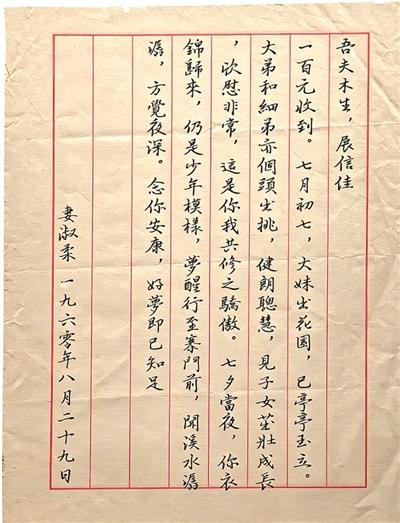 吾夫木生，展信佳
一百元收到。七月初七，大妹出花园，已亭亭玉立。
大弟和細弟亦個頭出挑，健朗聰慧，見子女茁壯成長
，欣慰非常，這是你我共修之驕傲。七夕當夜，你衣
錦歸來，仍是少年模樣，夢醒行至寨門前，聞溪水潺
潺，方覺夜深。念你安康，好夢即已知足
妻淑柔 一九六零年八月二十九日